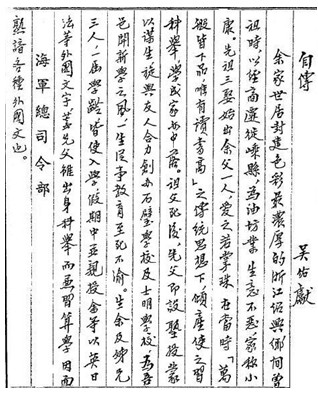 自傳　　吳佑獻
余家世居封建色彩最濃厚的浙江紹興鄉間曾
祖時以經商遷徙嵊縣為油坊業生意不惡家稱小
康。先祖三娶始出余父一人愛之若掌珠在當時「萬
般皆下品唯有讀書高」之傳統思想下傾產使之習
科舉學成家亦中落。祖父死後先父即設塾授蒙
以謀生旋與友人合力創辦石璧學校及士明學校為吾
邑開新學之風一生從事教育至死不渝。生余及姊兄
三人一屆學齡皆使入學假期中並親授余等以英日
法等外國文字蓋先父雖出身科舉而兼習算學因而
熟諳各種外國文也。
海軍總司令部